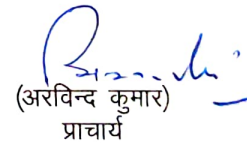 (अरविन्द कुमार)
प्राचार्य